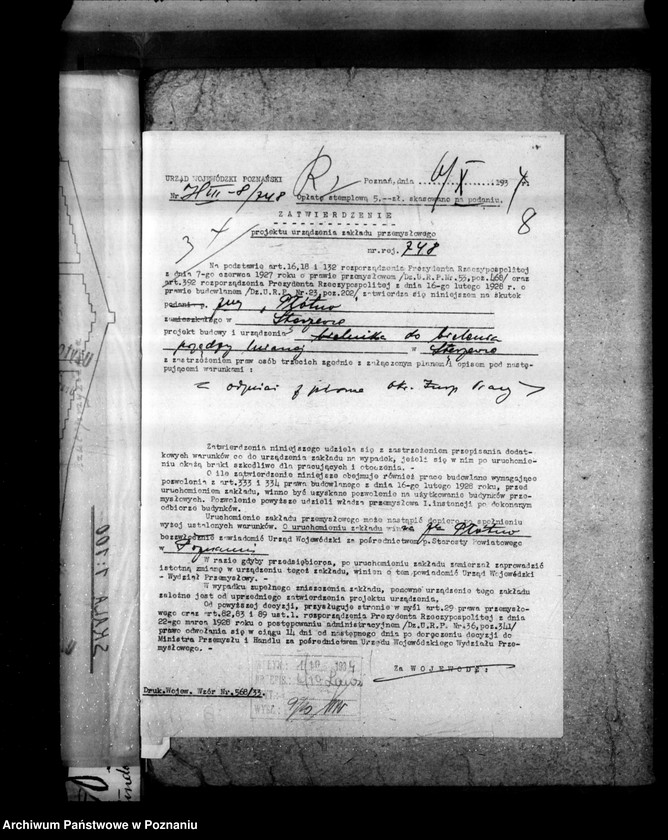 URZĄD WOJEWÓDZKI POZNAŃSKI
Poznań,dnia 193 4 r.
Nr. 748
Opłatę stemplową 5,--zł. skasowano na podaniu.
8
ZATWIERDZENIE
projektu urządzenia zakładu przemysłowego
nr.rej. 748
Na podstawie art.16,18 i 132 rozporządzenia Prezydenta Rzeczypospolitej
z dnia 7-go czerwca 1927 roku o prawie przemysłowem /Dz.U.R.P.Nr.53,poz.468/ oraz
art.392 rozporządzenia Prezydenta Rzeczypospolitej z dnia 16-go lutego 1928 r. o
prawie budowlanem /Dz.U.R.P. Nr.23,poz.202/ zatwierdza się niniejszem na skutek
podania
zamieszkałego w
projekt budowy i urządzenia bielnika do bielenia
w
z zastrzeżeniem praw osób trzecich zgodnie z załączonym planem/i opisem pod nastę-
pującemi warunkami :
Zatwierdzenia niniejszego udziela się z zastrzeżeniem przepisania dodat-
kowych warunków co do urządzenia zakładu na wypadek, jeżeli się w nim po uruchomie-
niu okażą braki szkodliwe dla pracujących i otoczenia. -
O ile zatwierdzenie niniejsze obejmuje również prace budowlane wymagające
pozwolenia z art.333 i 334 prawa budowlanego z dnia 16-go lutego 1928 roku, przed
uruchomieniem zakładu, winno być uzyskane pozwolenie na użytkowanie budynków prze-
mysłowych. Pozwolenie powyższe udzieli władza przemysłowa I.instancji po dokonanym
odbiorze budynków.
Uruchomienie zakładu przemysłowego może nastąpić dopiero po spełnieniu
wyżej ustalonych warunków. O uruchomieniu zakładu
bezzwłocznie zawiadomić Urząd Wojewódzki za pośrednictwem/p.Starosty Powiatowego
w
W razie gdyby przedsiębiorca, po uruchomieniu zakładu zamierzał zaprowadzić
istotną zmianę w urządzeniu tegoż zakładu, winien o tem powiadomić Urząd Wojewódzki
- Wydział Przemysłowy. -
W wypadku zupełnego zniszczenia zakładu, ponowne urządzenie tego zakładu
zależne jest od uprzedniego zatwierdzenia projektu urządzenia.
Od powyższej decyzji, przysługuje stronie w myśl art.29 prawa przemysło-
wego oraz art.82,83 i 89 ust.1. rozporządzenia Prezydenta Rzeczypospolitej z dnia
22-go marca 1928 roku o postępowaniu administracyjnem /Dz.U.R.P. Nr.36,poz.341/
prawo odwołania się w ciągu 14 dni od następnego dnia po doręczeniu decyzji do
Ministra Przemysłu i Handlu za pośrednictwem Urzędu Wojewódzkiego Wydziału Prze-
mysłowego. -
Za WOJEWODĘ:
Druk.Wojew. Wzór Nr.568/33.
SKALA 1:200
Archiwum Państwowe w Poznaniu